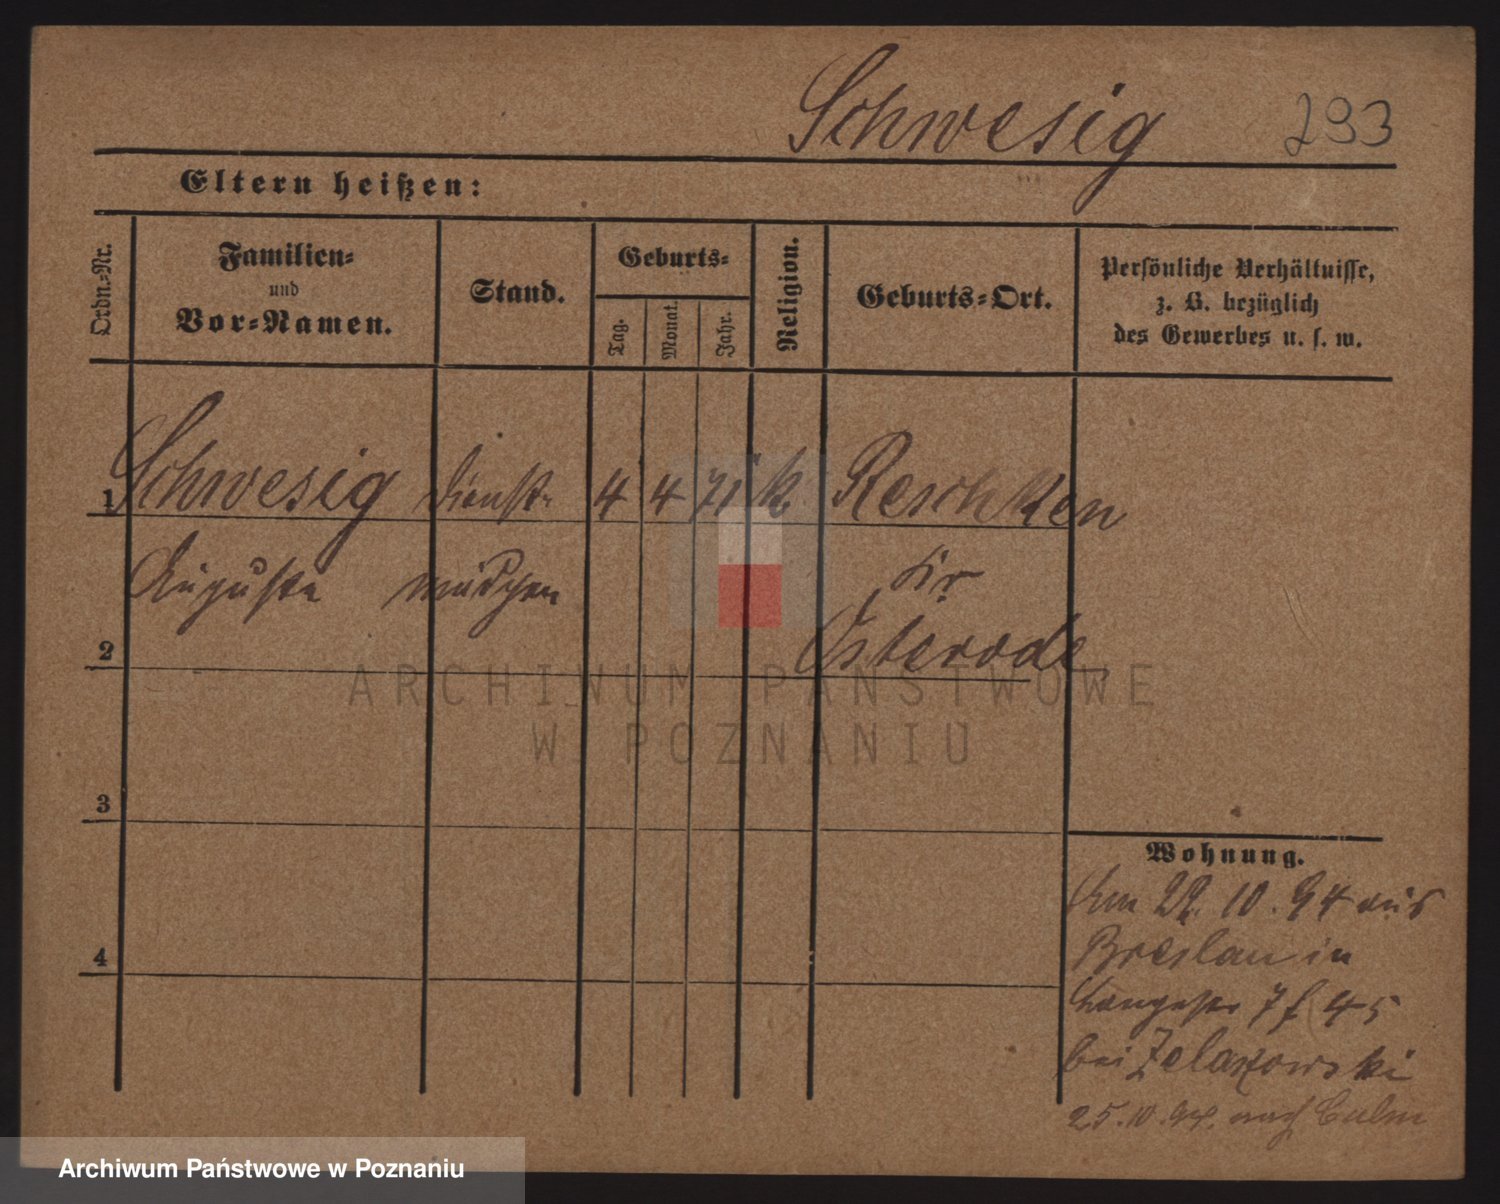 Schwesig 293
Eltern heißen:
Ordn.-Nr.
Familien-
und
Vor-Namen.
Stand.
Geburts-
Tag.
Monat.
Jahr.
Religion.
Geburts-Ort.
Persönliche Verhältnisse,
z. B. bezüglich
des Gewerbes u. s. w.
1 Schwesig dienst- 4 4 71 k Reschken
Auguste mädchen Kr
2 Osterode
ARCHIWUM PAŃSTWOWE
W POZNANIU
3
Wohnung.
Am 22. 10. 94 aus
4 Breslau in
Langestr 7 f 45
bei Zelazowski
25. 10. 94. nach Culm
Archiwum Państwowe w Poznaniu